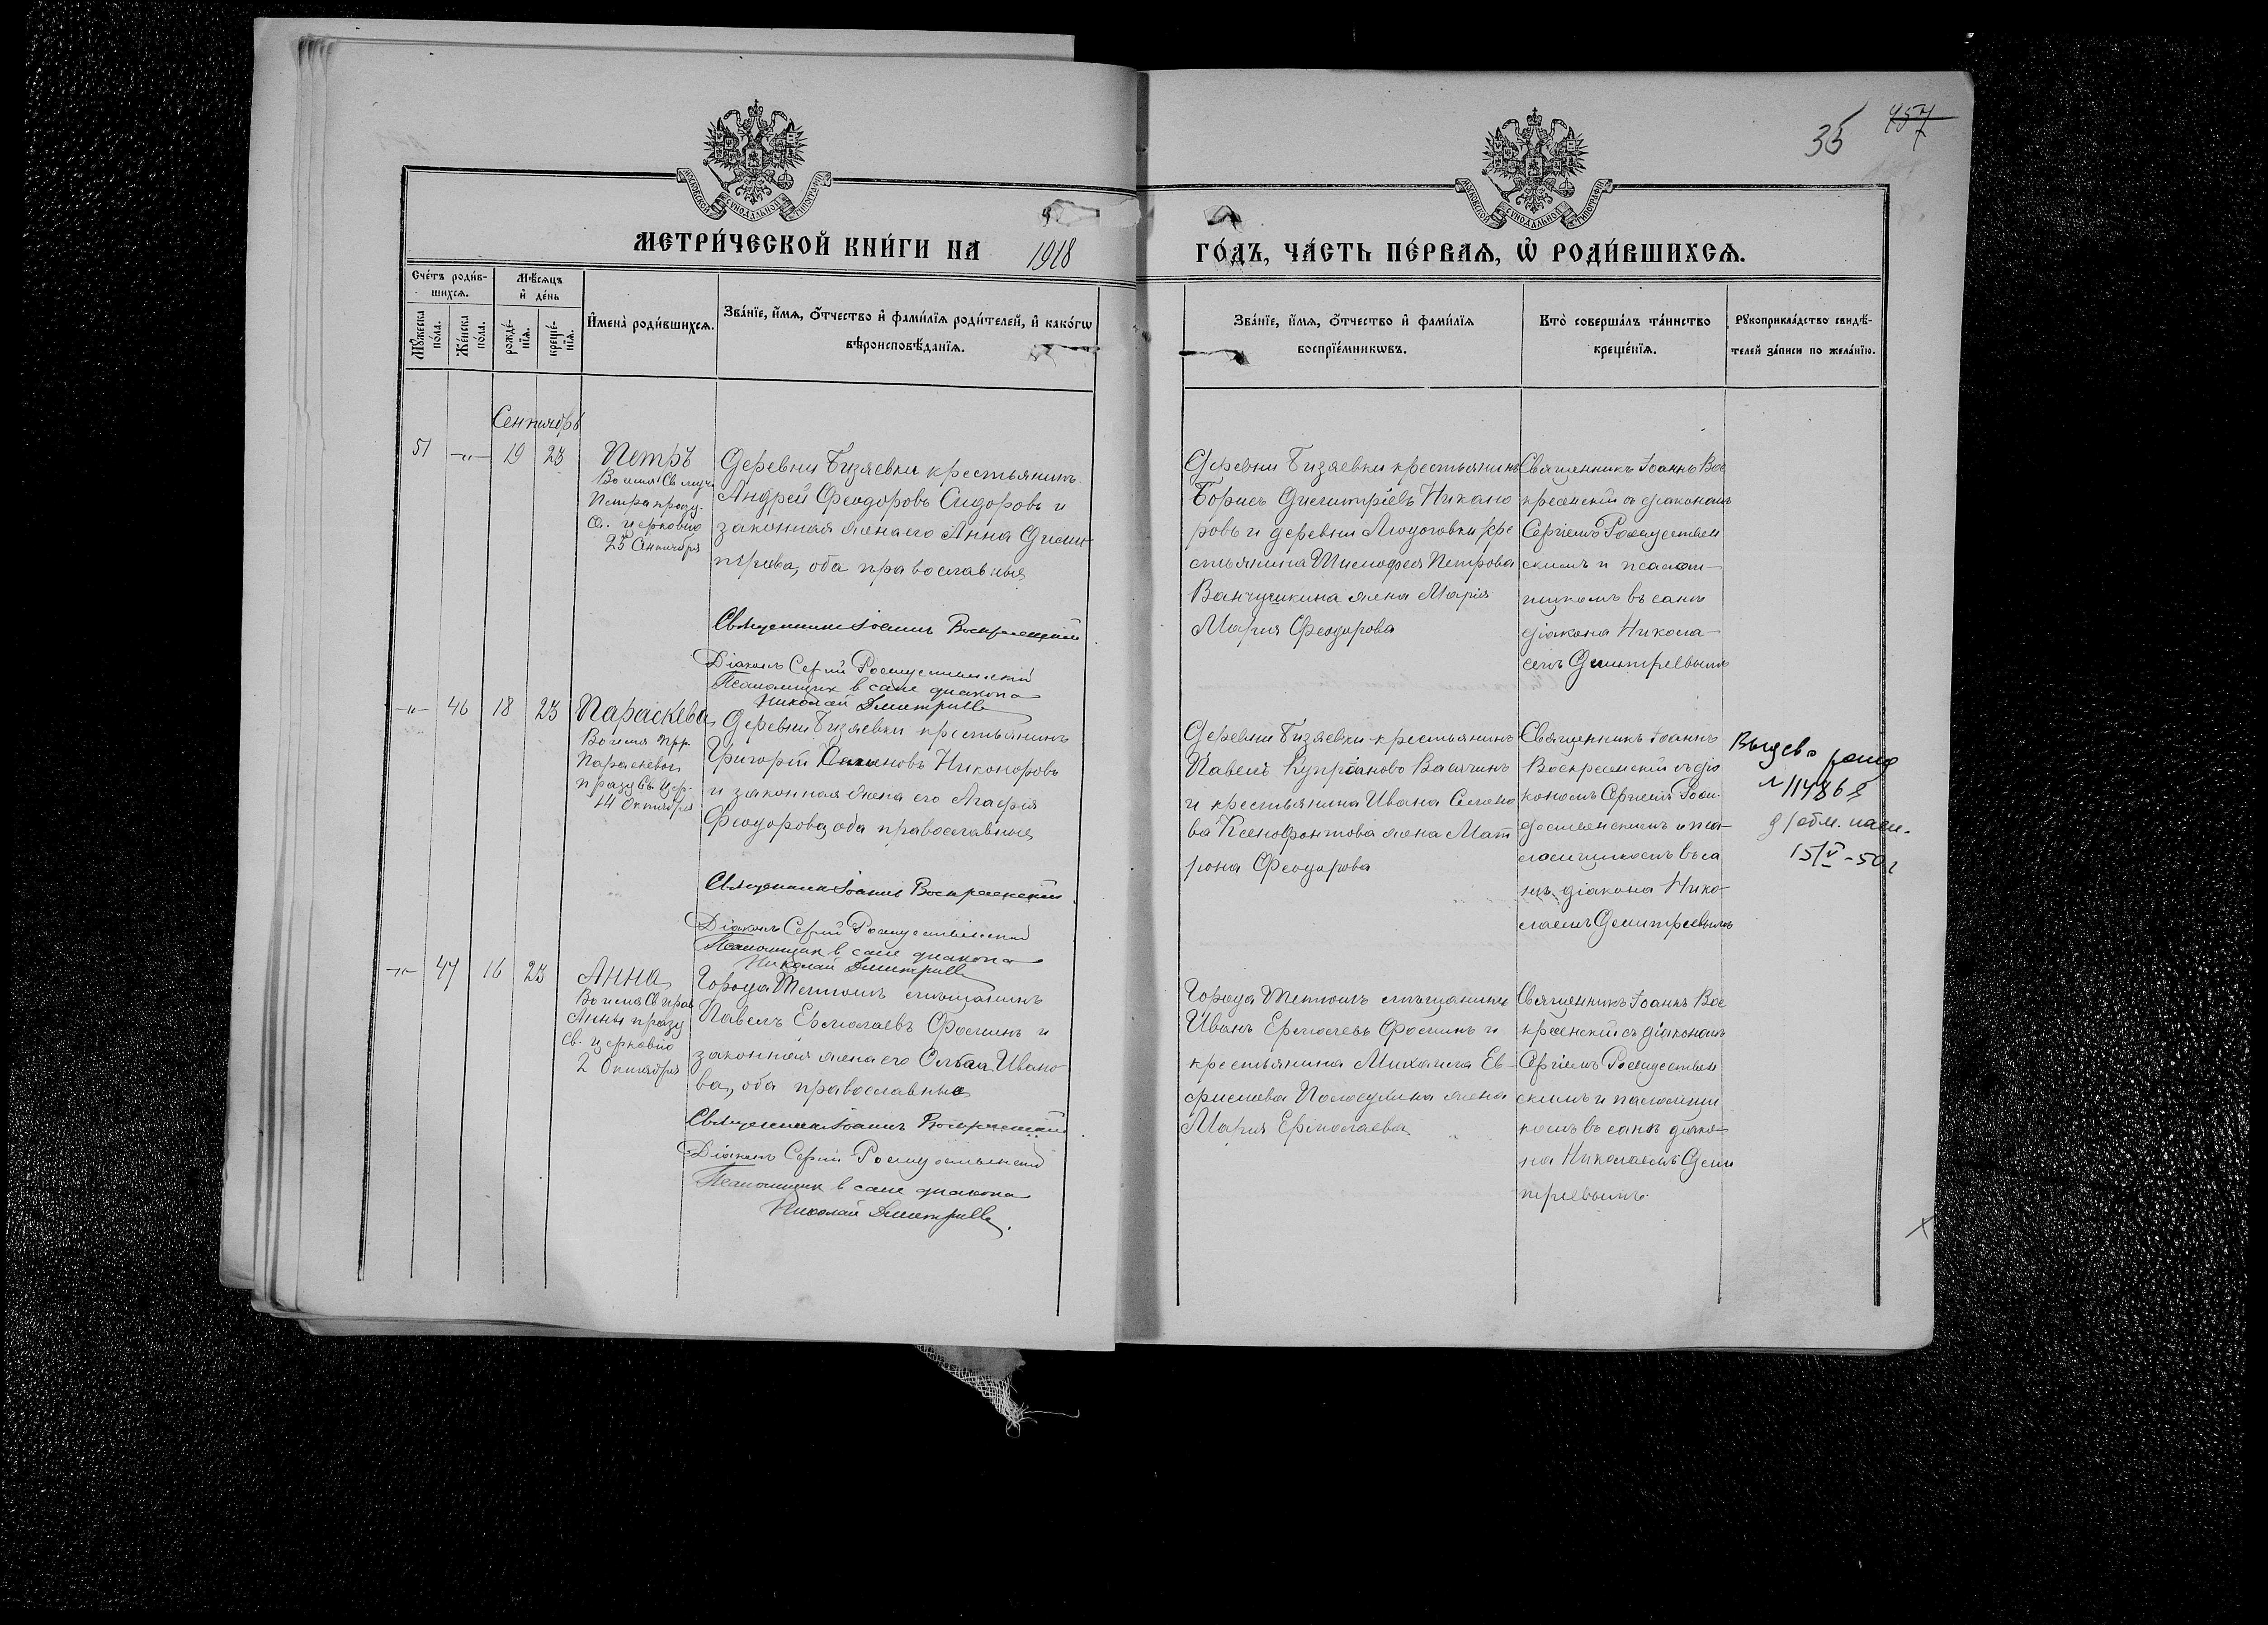 35
457
МОСКОВСКОЙ СѴНОДАЛЬНОЙ ТИПОГРАФІИ
МОСКОВСКОЙ СѴНОДАЛЬНОЙ ТИПОГРАФІИ
МЕТРИ́ЧЕСКОЙ КНИ́ГИ НА 1918 ГО́ДЪ, ЧА́СТЬ ПЕ́РВАѦ, Ѽ РОДИ́ВШИХСѦ.
Сче́тъ роди́в-
шихсѧ.
Мꙋ́жеска
по́ла.
Же́нска
по́ла.
Мѣ́сѧцъ
и҆ де́нь
рожде́-
нїѧ.
креще́-
нїѧ.
И҆мена̀ роди́вшихсѧ.
Зва́нїе, и҆́мѧ, ѻ҆́тчество и҆ фами́лїѧ роди́телей, и҆ како́гѡ
вѣроисповѣ́данїѧ.
Зва́нїе, и҆́мѧ, ѻ҆́тчество и҆ фами́лїѧ
воспрїе́мникѡвъ.
Кто̀ соверша́лъ та́инство
креще́нїѧ.
Рꙋкоприкла́дство свидѣ́-
телей за́писи по жела́нїю.
Сентябрь
51 -„- 19 23
Петръ
Во имя Св муч.
Петра празу.
Св. церковію
25 Сентября
Деревни Бизяевки крестьянинъ
Андрей Феодоровъ Сидоровъ и
законная жена его Анна Дими-
тріева, оба православные
Священникъ Іоаннъ Воскресенскій
Діаконъ Сергій Рождественскій
Псаломщик в сане диакона
Николай Димитриев
Деревни Бизяевки крестьянинъ
Борисъ Димитріевъ Никано
ровъ и деревни Людоговки кре
стьянина Тимофея Петрова
Ванчушкина жена Марія
Мария Феодорова
Священникъ Іоаннъ Вос
кресенскій съ діакономъ
Сергіемъ Рождествен
скимъ и псалом-
щикомъ въ санѣ
діакона Никола-
емъ Димитріевымъ
-„- 46 18 23
Параскева
Во имя прп.
Параскевы
празу Св. цер.
14 Октября
Деревни Бизяевки крестьянинъ
Григорій Никоноровъ
и законная жена его Агафія
Феодорова, оба православные
Священникъ Іоаннъ Воскресенскій
Діаконъ Сергій Рождественскій
Псаломщик в сане диакона
Николай Димитриев
Деревни Бизяевки крестьянинъ
Павелъ Купріановъ Васячинъ
и крестьянина Ивана Семено
ва Ксенофонтова жена Мат
рона Феодорова
Священникъ Іоаннъ
Воскресенскій съ діа
кономъ Сергіемъ Рож
дественскимъ и пса-
ломщикомъ въ са
нѣ діакона Нико-
лаемъ Димитріевымъ
№ 114868
15/V-50г
-„- 47 16 23
Анна
Во имя Св прав
Анны празу
Св. церковію
2 Октября
Города Тетюшъ мѣщанинъ
Павелъ Ермолаевъ Фоминъ и
законная жена его Ольга Ивано
ва, оба православные
Священникъ Іоаннъ Воскресенскій
Діаконъ Сергій Рождественскій
Псаломщик в сане диакона
Николай Димитриев.
Города Тетюшъ мѣщанинъ
Иванъ Ермолаевъ Фоминъ и
крестьянина Михаила Ев-
фимиева Полосухина жена
Мария Ермолаева
Священникъ Іоаннъ Вос
кресенскій съ діакономъ
Сергіемъ Рождествен
скимъ и псаломщи
комъ въ санѣ діако-
на Николаемъ Дим
тріевымъ